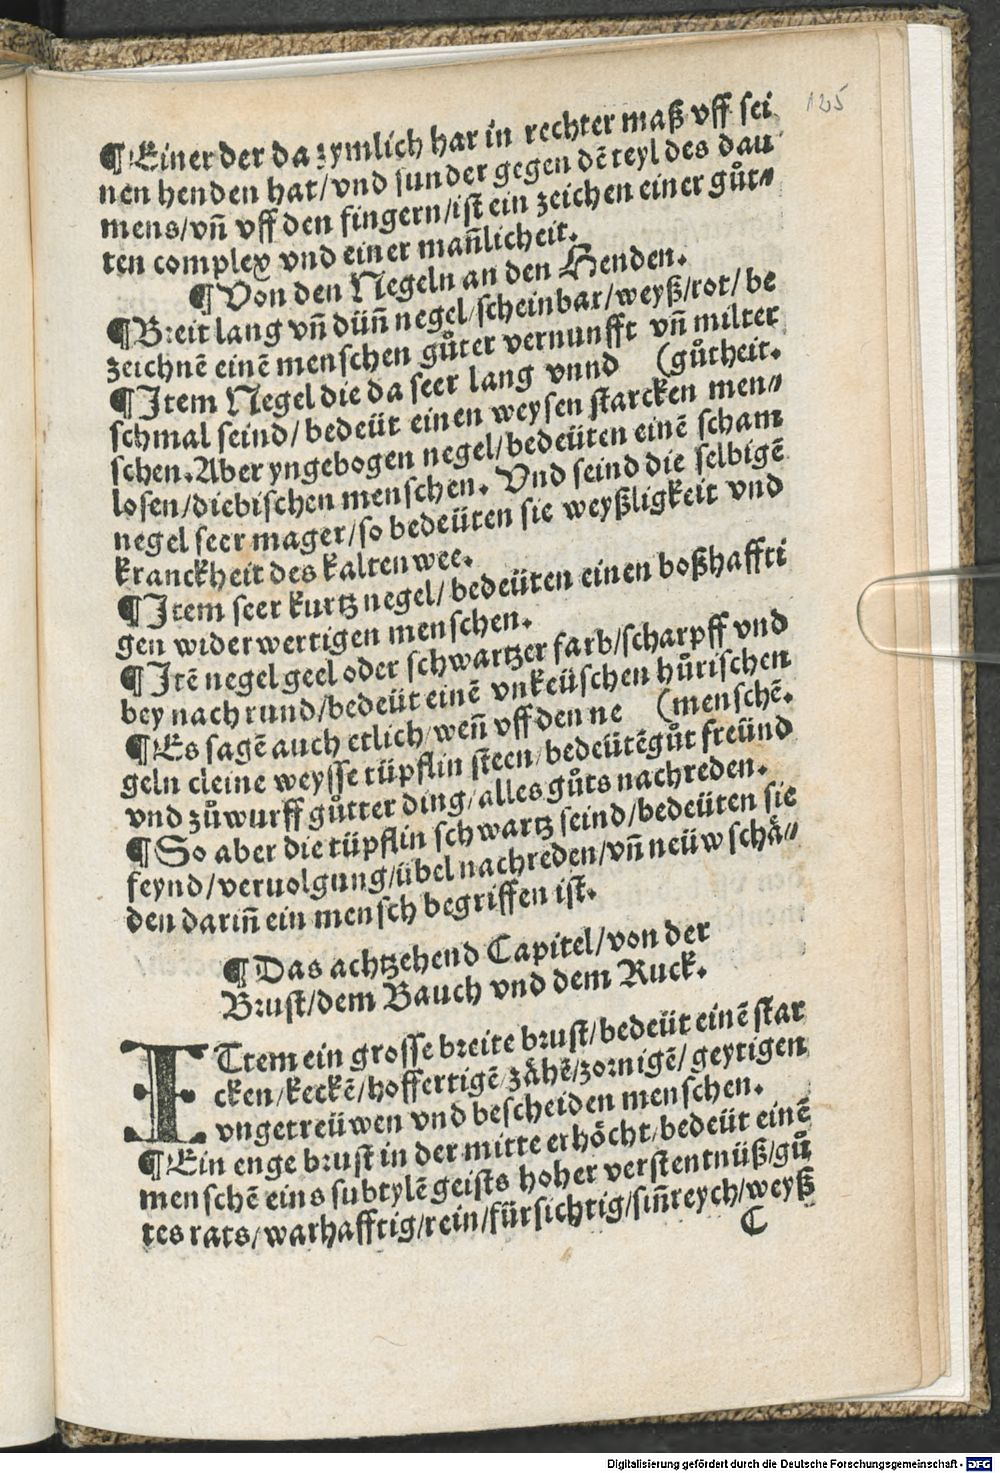 125
¶Einer der da zymlich har in rechter maß vff sei
nen henden hat/vnd sunder gegen dē teyl des dau
mens/vn̄ vff den fingern/ist ein zeichen einer gůt⸗
ten complex vnd einer man̄licheit.
¶Von den Negeln an den Henden.
¶Breit lang vn̄ dün̄ negel/scheinbar/weyß/rot/be
zeichnē einē menschen gůter vernunfft vn̄ milter
¶Item Negel die da seer lang vnnd (gůtheit.
schmal seind/bedeüt einen weysen starcken men⸗
schen. Aber yngebogen negel/bedeüten einē scham
losen/diebischen menschen. Vnd seind die selbigē
negel seer mager/so bedeüten sie weyßligkeit vnd
kranckheit des kalten wee.
¶Item seer kurtz negel/bedeüten einen boßhaffti
gen widerwertigen menschen.
¶Itē negel geel oder schwartzer farb/scharpff vnd
bey nach rund/bedeüt einē vnkeüschen hůrischen
¶Es sagē auch etlich/wen̄ vff den ne (menschē.
geln cleine weysse tüpflin steen/bedeütē gůt freünd
vnd zůwurff gůtter ding/alles gůts nachreden.
¶So aber die tüpflin schwartz seind/bedeüten sie
feynd/veruolgung/übel nachreden/vn̄ neüw schä⸗
den darin̄ ein mensch begriffen ist.
¶Das achtzehend Capitel/von der
Brust/dem Bauch vnd dem Ruck.
ITtem ein grosse breite brust/bedeüt einē star
cken/keckē/hoffertigē/zähē/zornigē/geytigen
vngetreüwen vnd bescheiden menschen.
¶Ein enge brust in der mitte erhöcht/bedeüt einē
menschē eins subtylē geists hoher verstentnüß/gů
tes rats/warhafftig/rein/fürsichtig/sin̄reych/weyß
C
Digitalisierung gefördert durch die Deutsche Forschungsgemeinschaft - DFG